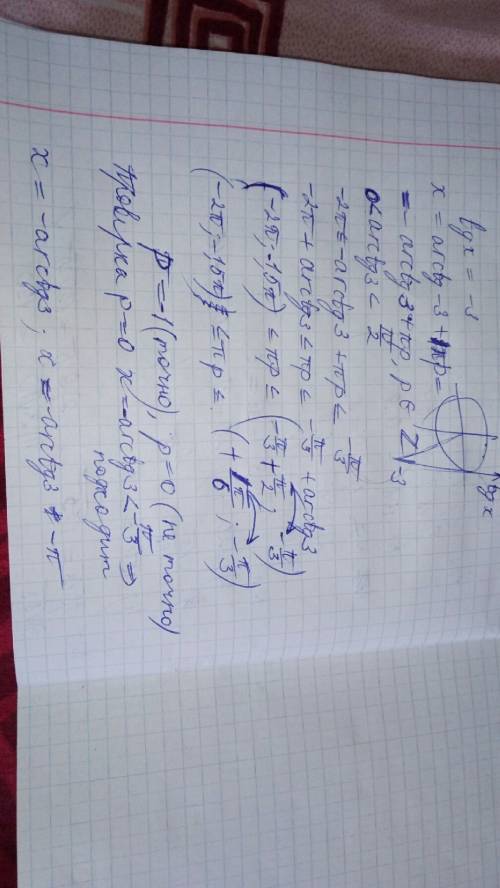 tg x = -3
x = arctg -3 + πp =
= -arctg 3 + πp, p ∈ Z
0 < arctg 3 < π/2
-2π ≤ -arctg 3 + πp ≤ -π/3
-2π + arctg 3 ≤ πp ≤ -π/3 + arctg 3
(-2π; -1,5π) ≤ πp ≤ (-π/3 + π/2; -π/3)
(-2π; -1,5π) ≤ πp ≤ (+π/6; -π/3)
p = -1 (точно), p = 0 (не точно)
Проверка p = 0 x = -arctg 3 < -π/3 ⇒
подходит
x = -arctg 3; x = -arctg 3 - π
tg x
-3